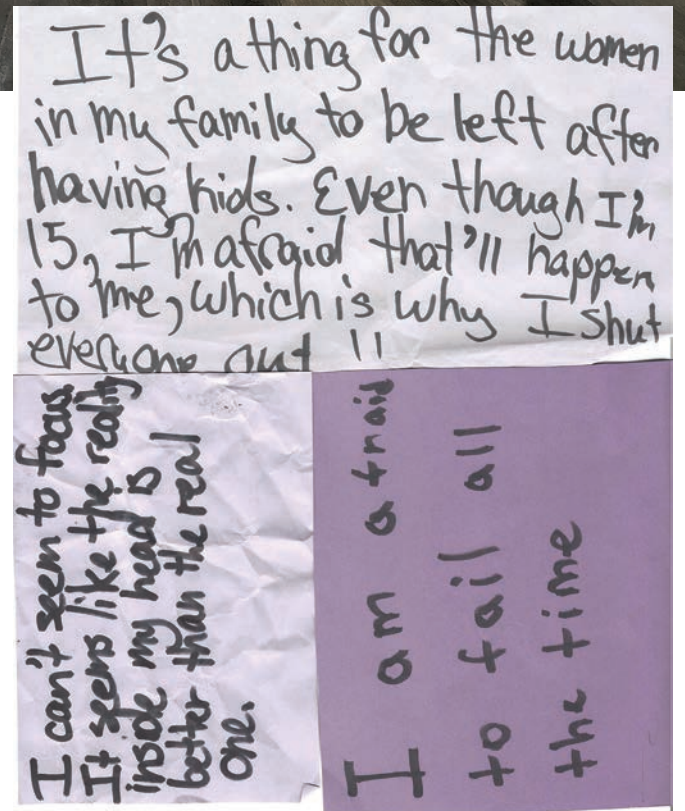 It's a thing for the women
in my family to be left after
having kids. Even though I'm
15, I'm afraid that'll happen
to me, which is why I shut
everyone out !!
I can't seem to focus.
It seems like the reality
inside my head is
better than the real
one.
I am afraid
to fail all
the time